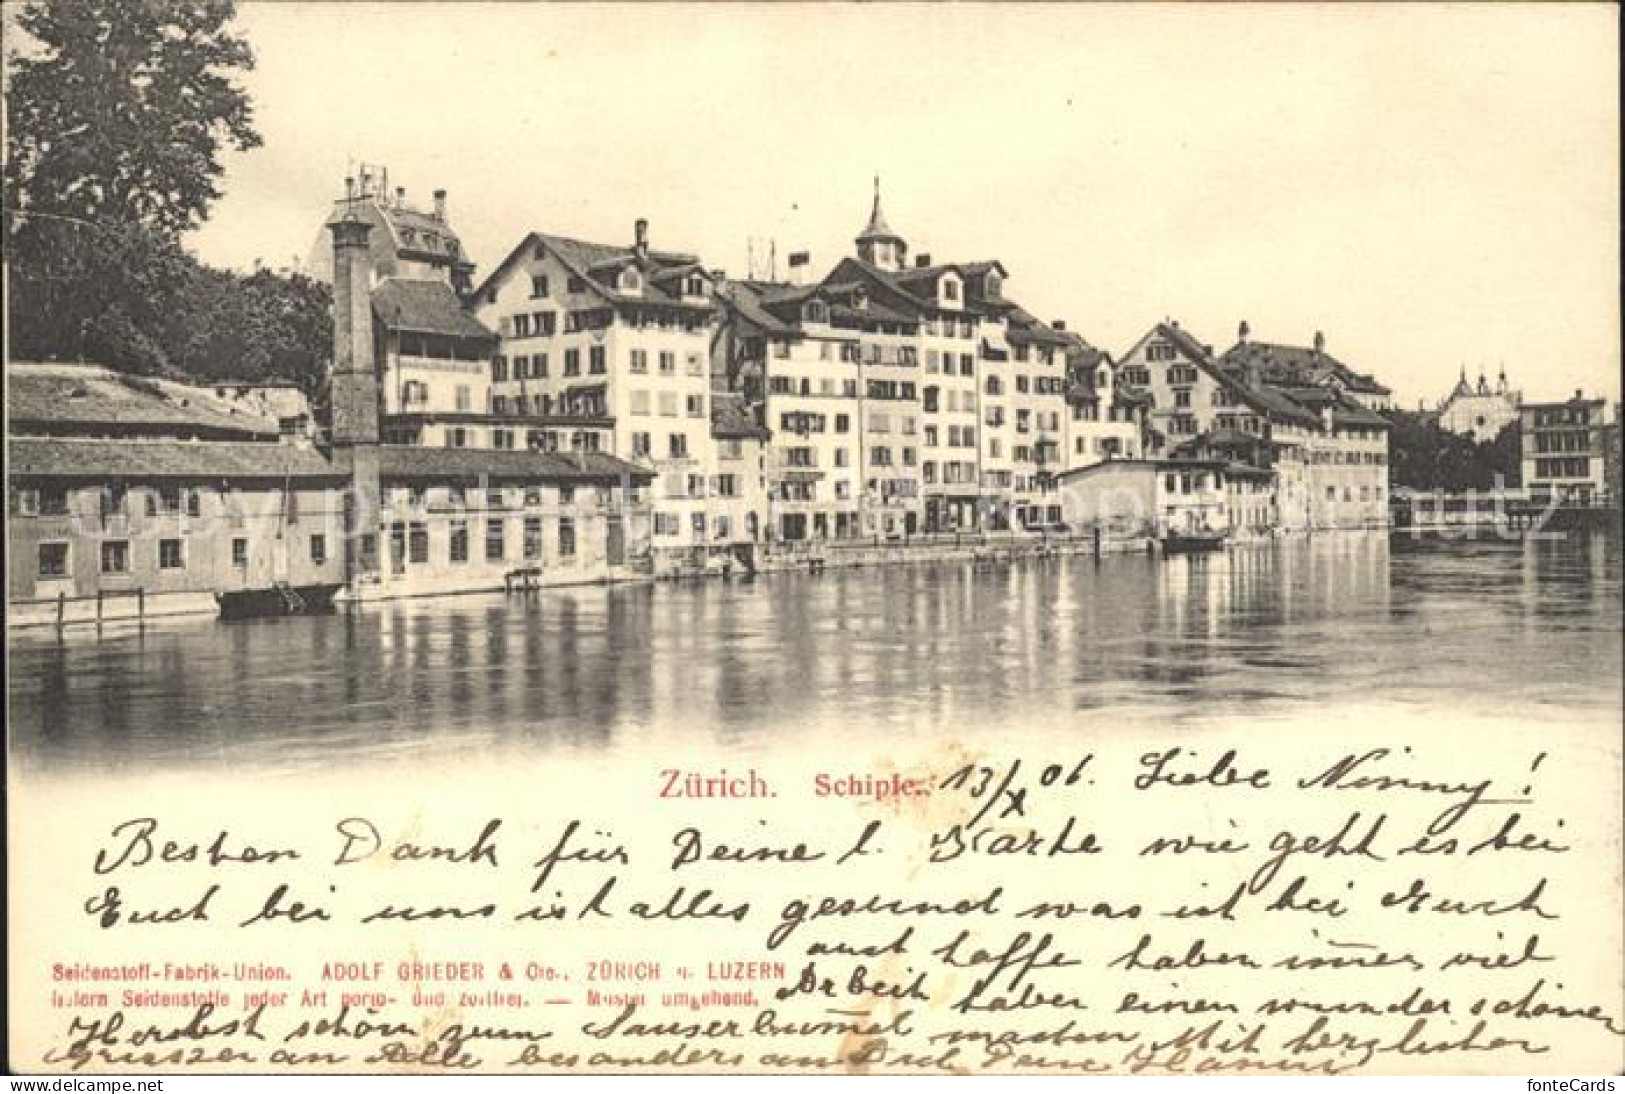 Copyright Bildschutz
Zürich. Schipfe. 13/X 06. Liebe Ninny!
Besten Dank für Deine l. Karte wie geht es bei
Euch bei uns ist alles gesund was ist bei Euch
auch hoffe haben immer viel
Seidenstoff-Fabrik-Union. ADOLF GRIEDER & Cie., ZÜRICH u. LUZERN
Arbeit haben einen wunder schönen
liefern Seidenstoffe jeder Art porto- und zollfrei. — Muster umgehend.
Herbst schön zum Sauserbummel machen. Mit herzlichen
Grüszen an Alle besonders an Dich Deine Hanni
www.delcampe.net
fonteCards